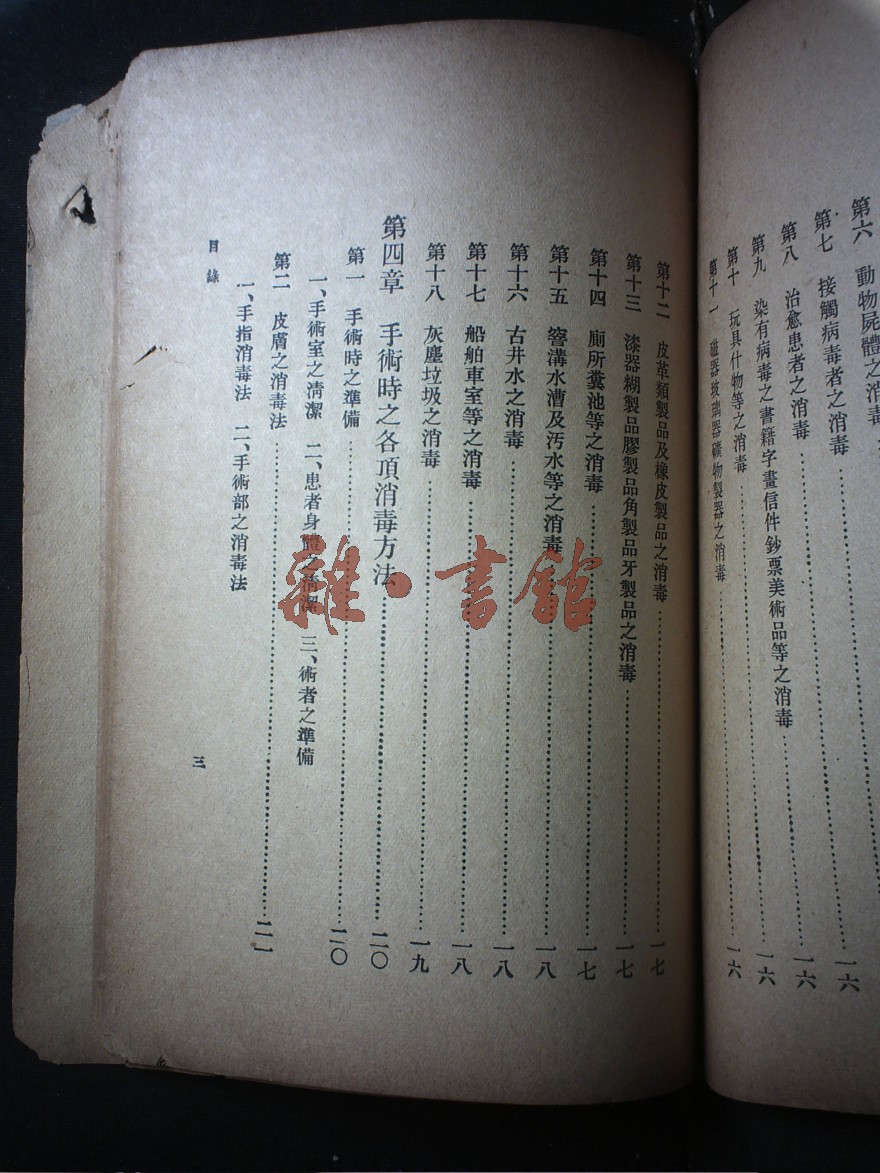 第六 動物屍體之消毒
第七 接觸病毒者之消毒 一六
第八 治愈患者之消毒 一六
第九 染有病毒之書籍字畫信件鈔票美術品等之消毒 一六
第十 玩具什物等之消毒 一六
第十一 磁器玻璃器礦物製器之消毒
第十二 皮革類製品及橡皮製品之消毒 一七
第十三 漆器糊製品膠製品角製品牙製品之消毒 一七
第十四 廁所糞池等之消毒 一七
第十五 窖溝水漕及汚水等之消毒 一八
第十六 古井水之消毒 一八
第十七 船舶車室等之消毒 一八
第十八 灰塵垃圾之消毒 一九
第四章 手術時之各項消毒方法 二〇
第一 手術時之準備 二〇
一、手術室之淸潔 二、患者身體之淸潔 三、術者之準備
第二 皮膚之消毒法 二一
一、手指消毒法 二、手術部之消毒法
目錄 三
雜·書館